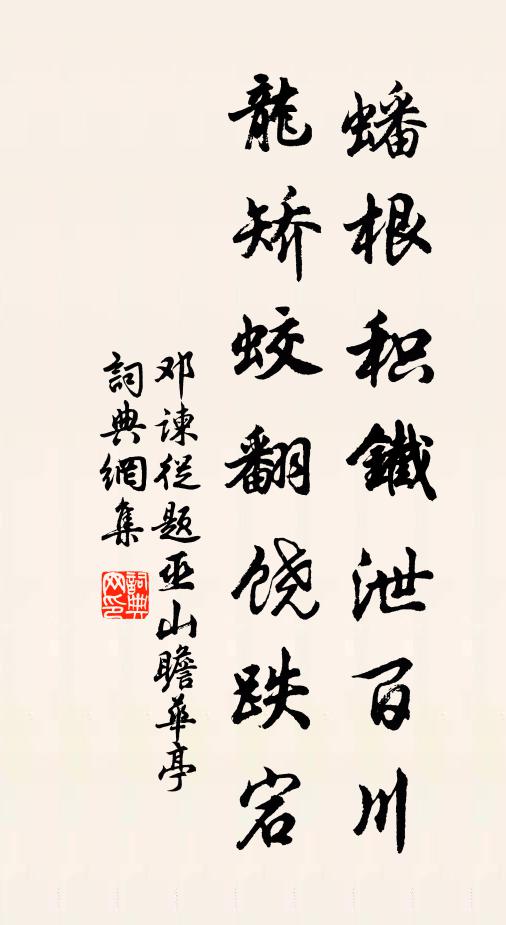 蟠根积鐵泄百川
龍矫蛟翻饶跌宕
邓谏從题巫山瞻華亭
詞典網集
詞典网印